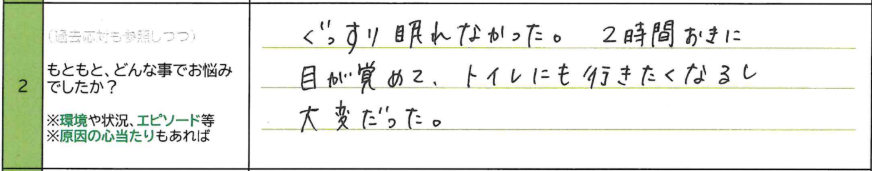 （過去応対も参照しつつ）
2
もともと、どんな事でお悩み
でしたか？
※環境や状況、エピソード等
※原因の心当たりもあれば
ぐっすり眠れなかった。 2時間おきに
目が覚めて、トイレにも行きたくなるし
大変だった。